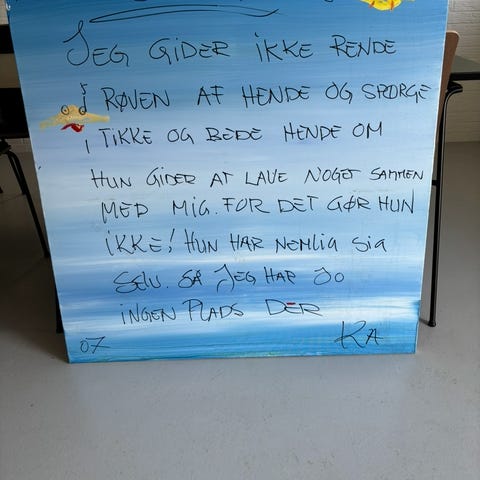 JEG GIDER IKKE RENDE
I RØVEN AF HENDE OG SPØRGE
I TIKKE OG BEDE HENDE OM
HUN GIDER AT LAVE NOGET SAMMEN
MED MIG. FOR DET GØR HUN
IKKE! HUN HAR NEMLIG SIG
SELV. SÅ JEG HAR JO
INGEN PLADS DER
07 KA